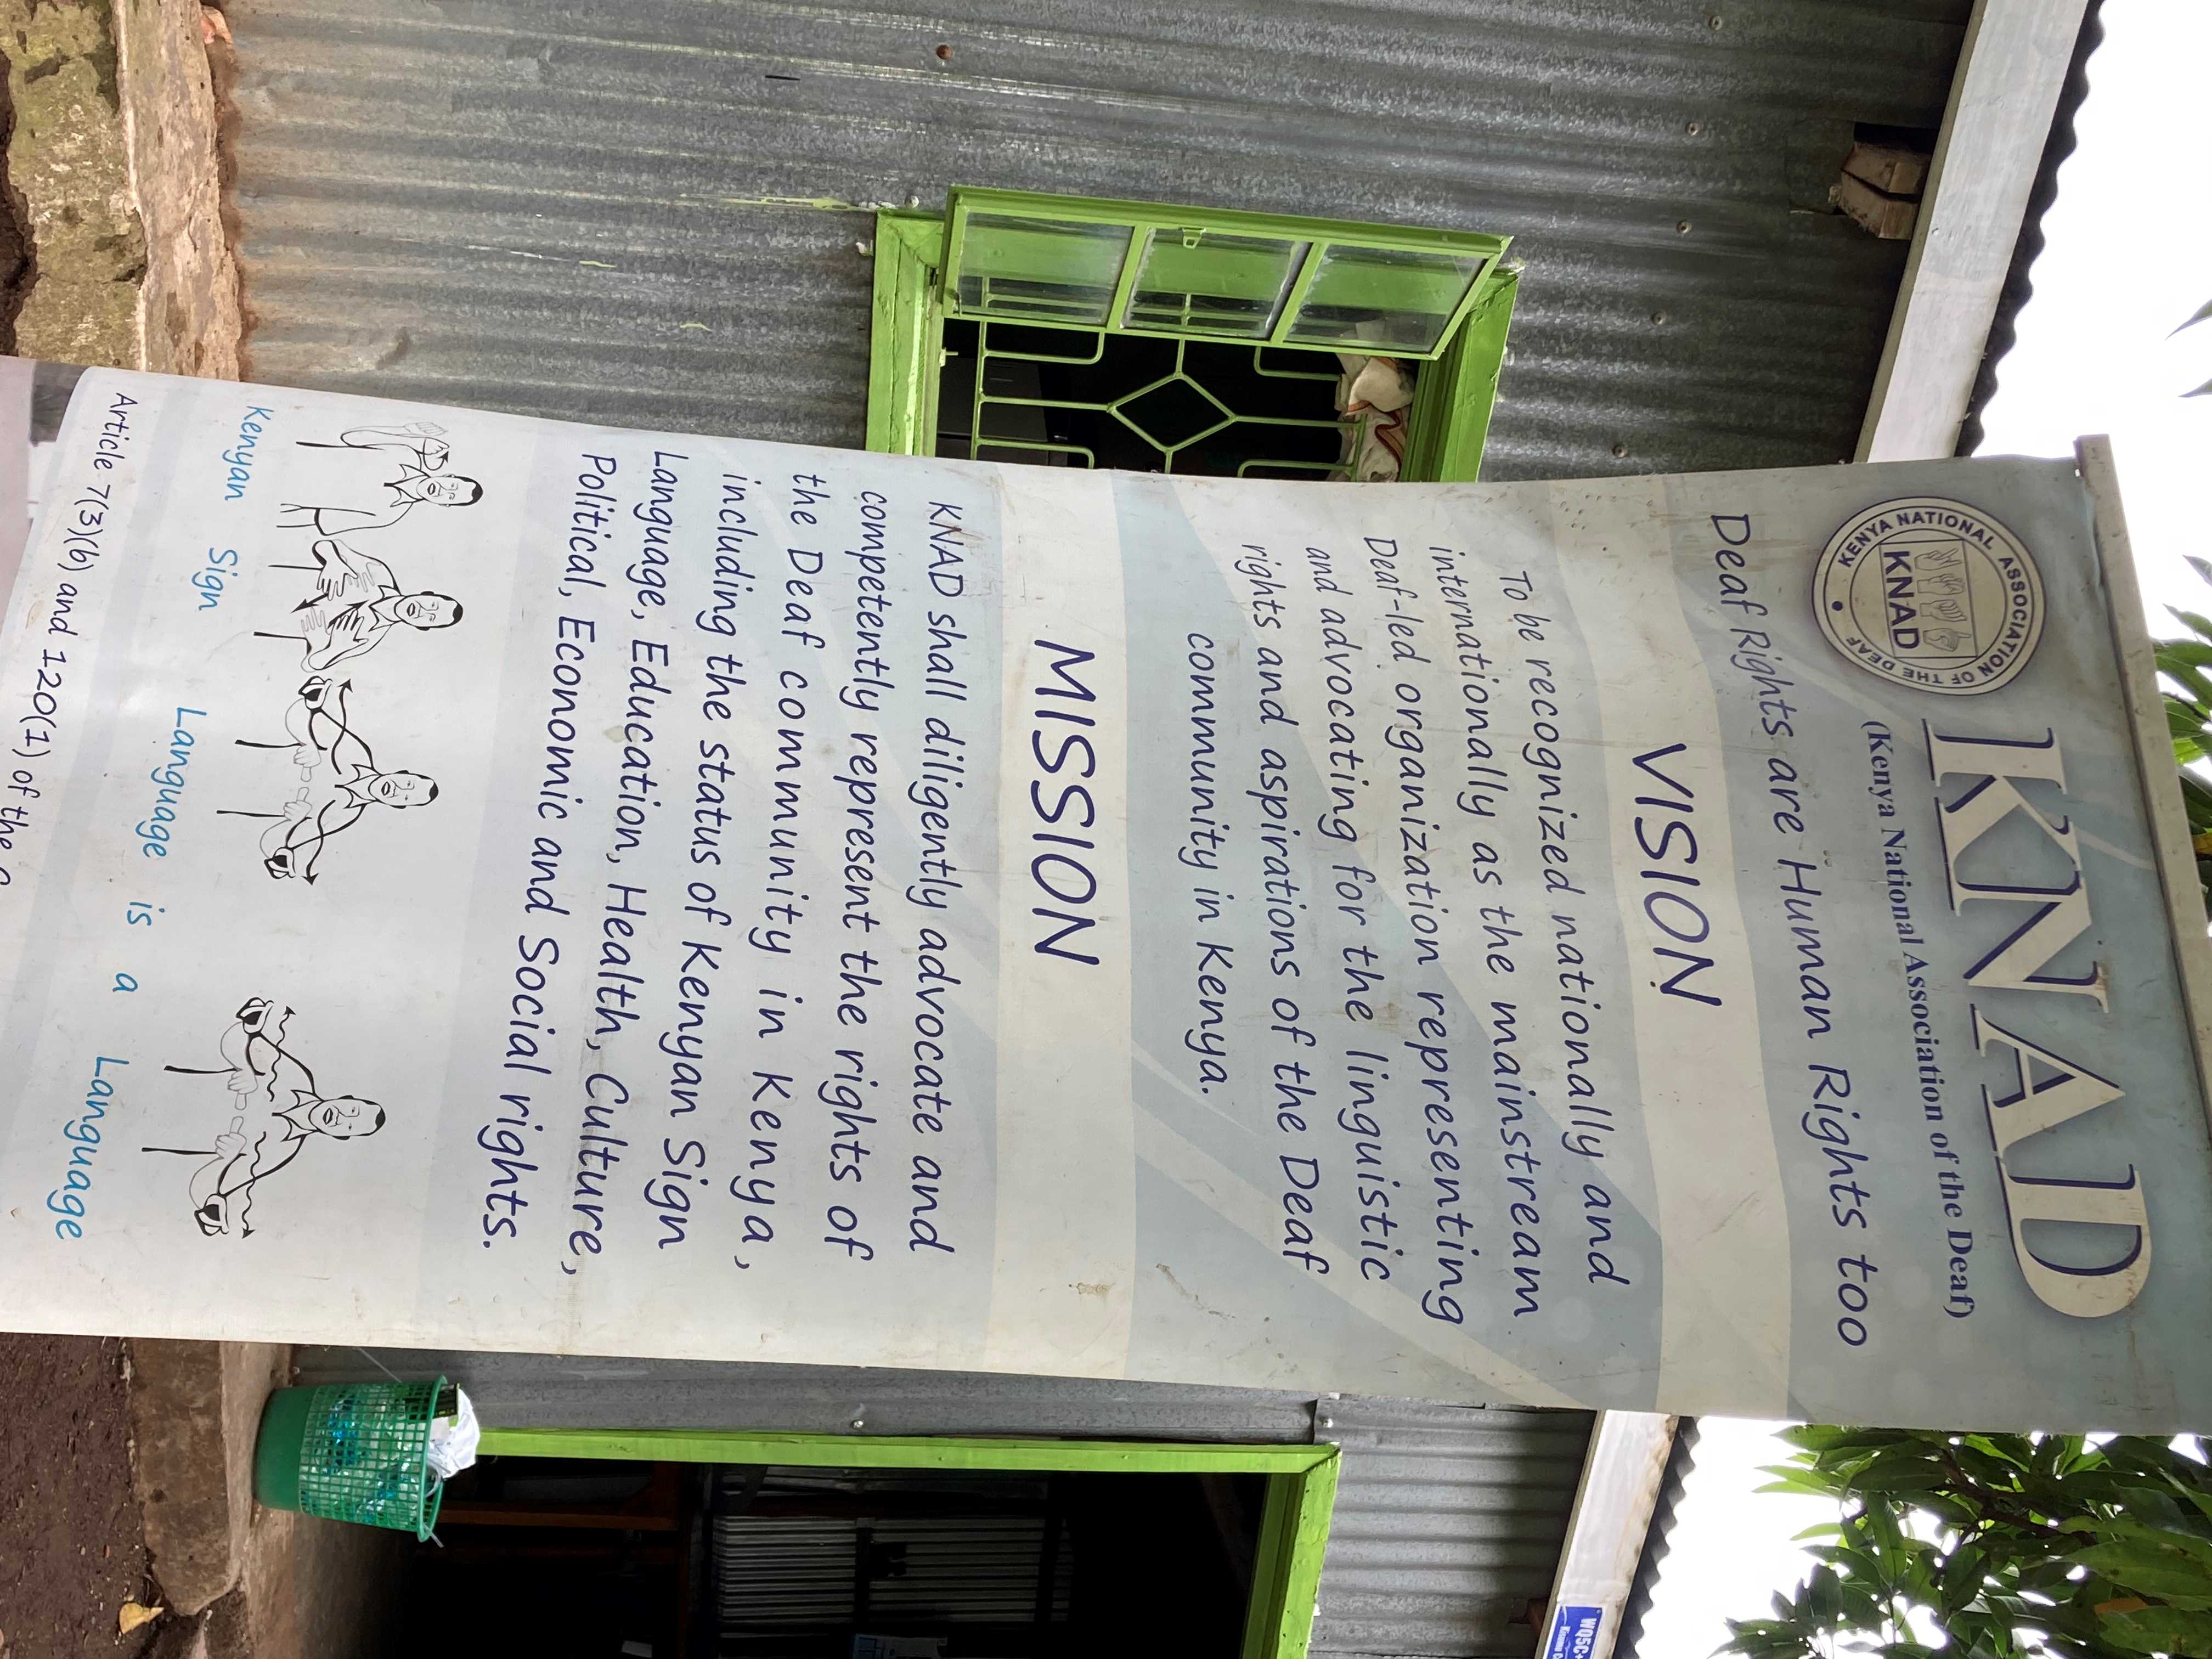 KENYA NATIONAL ASSOCIATION OF THE DEAF
KNAD
KNAD
(Kenya National Association of the Deaf)
Deaf Rights are Human Rights too
VISION
To be recognized nationally and
internationally as the mainstream
Deaf-led organization representing
and advocating for the linguistic
rights and aspirations of the Deaf
community in Kenya.
MISSION
KNAD shall diligently advocate and
competently represent the rights of
the Deaf community in Kenya,
including the status of Kenyan Sign
Language, Education, Health, Culture,
Political, Economic and Social rights.
Kenyan Sign Language is a Language
Article 7(3)(b) and 120(1) of the
WQ5C+